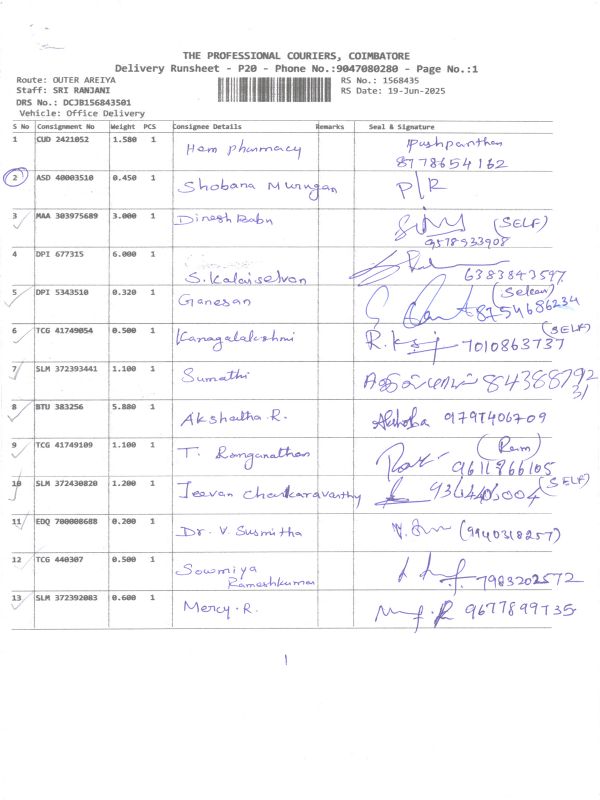 THE PROFESSIONAL COURIERS, COIMBATORE
Delivery Runsheet - P20 - Phone No.:9047080280 - Page No.:1
Route: OUTER AREIYA
RS No.: 1568435
Staff: SRI RANJANI
RS Date: 19-Jun-2025
DRS No.: DCJB156843501
Vehicle: Office Delivery
S No Consignment No Weight PCS Consignee Details Remarks Seal & Signature
1 CUD 2421052 1.580 1 Hem pharmacy Pushpanthan
8778654162
2 ASD 40003510 0.450 1 Shobana Murugan P/R
3 MAA 303975689 3.000 1 Dinesh Babu (SELF)
9578933908
4 DPI 677315 6.000 1 S. Kalaiselvan 6383843597
5 DPI 5343510 0.320 1 Ganesan 8754686234
6 TCG 41749054 0.500 1 Kanagalakshmi (SELF)
7010863737
7 SLM 372393441 1.100 1 Sumathi 84388792
31
8 BTU 383256 5.880 1 Akshatha R. 9797406709
9 TCG 41749109 1.100 1 T. Ranganathan (Ram)
9611866105
10 SLM 372430820 1.200 1 Jeevan Chakaravarthy (SELF)
11 EDQ 700008688 0.200 1 Dr. V. Susmitha (9940318257)
12 TCG 440307 0.500 1 Sowmiya
Rameshkumar 7983202572
13 SLM 372392083 0.600 1 Mercy. R. 9677899735
1